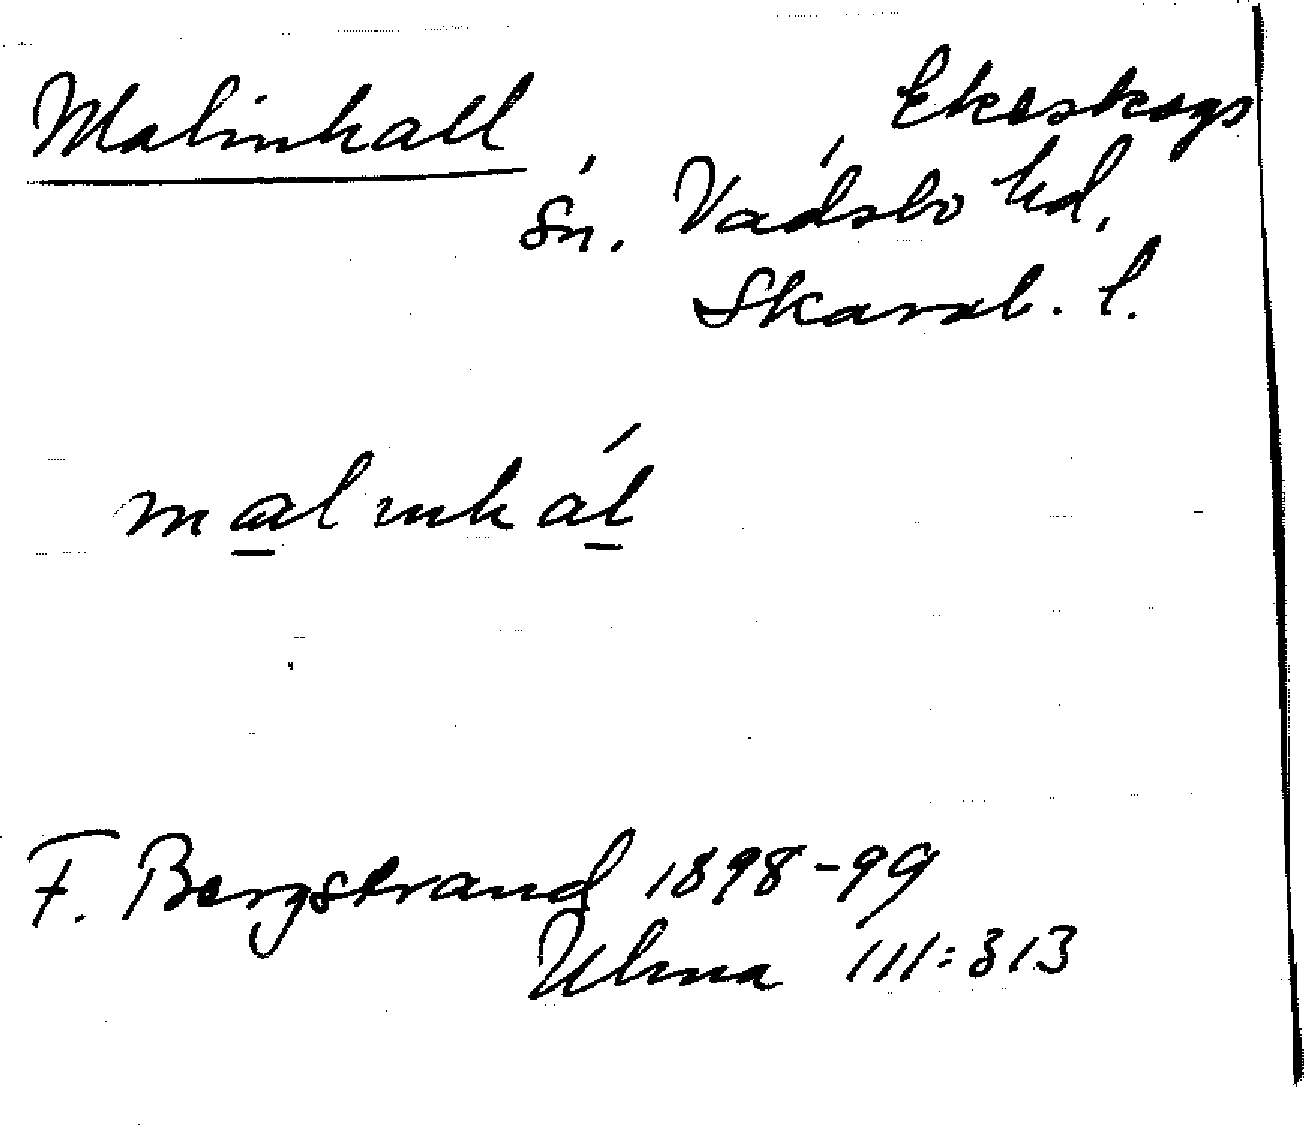 Malinhall Ekeskogs
sn. Vadsbo hd,
Skarab. l.
malinhal
F. Bergstrand 1898-99
Ulma 111:313